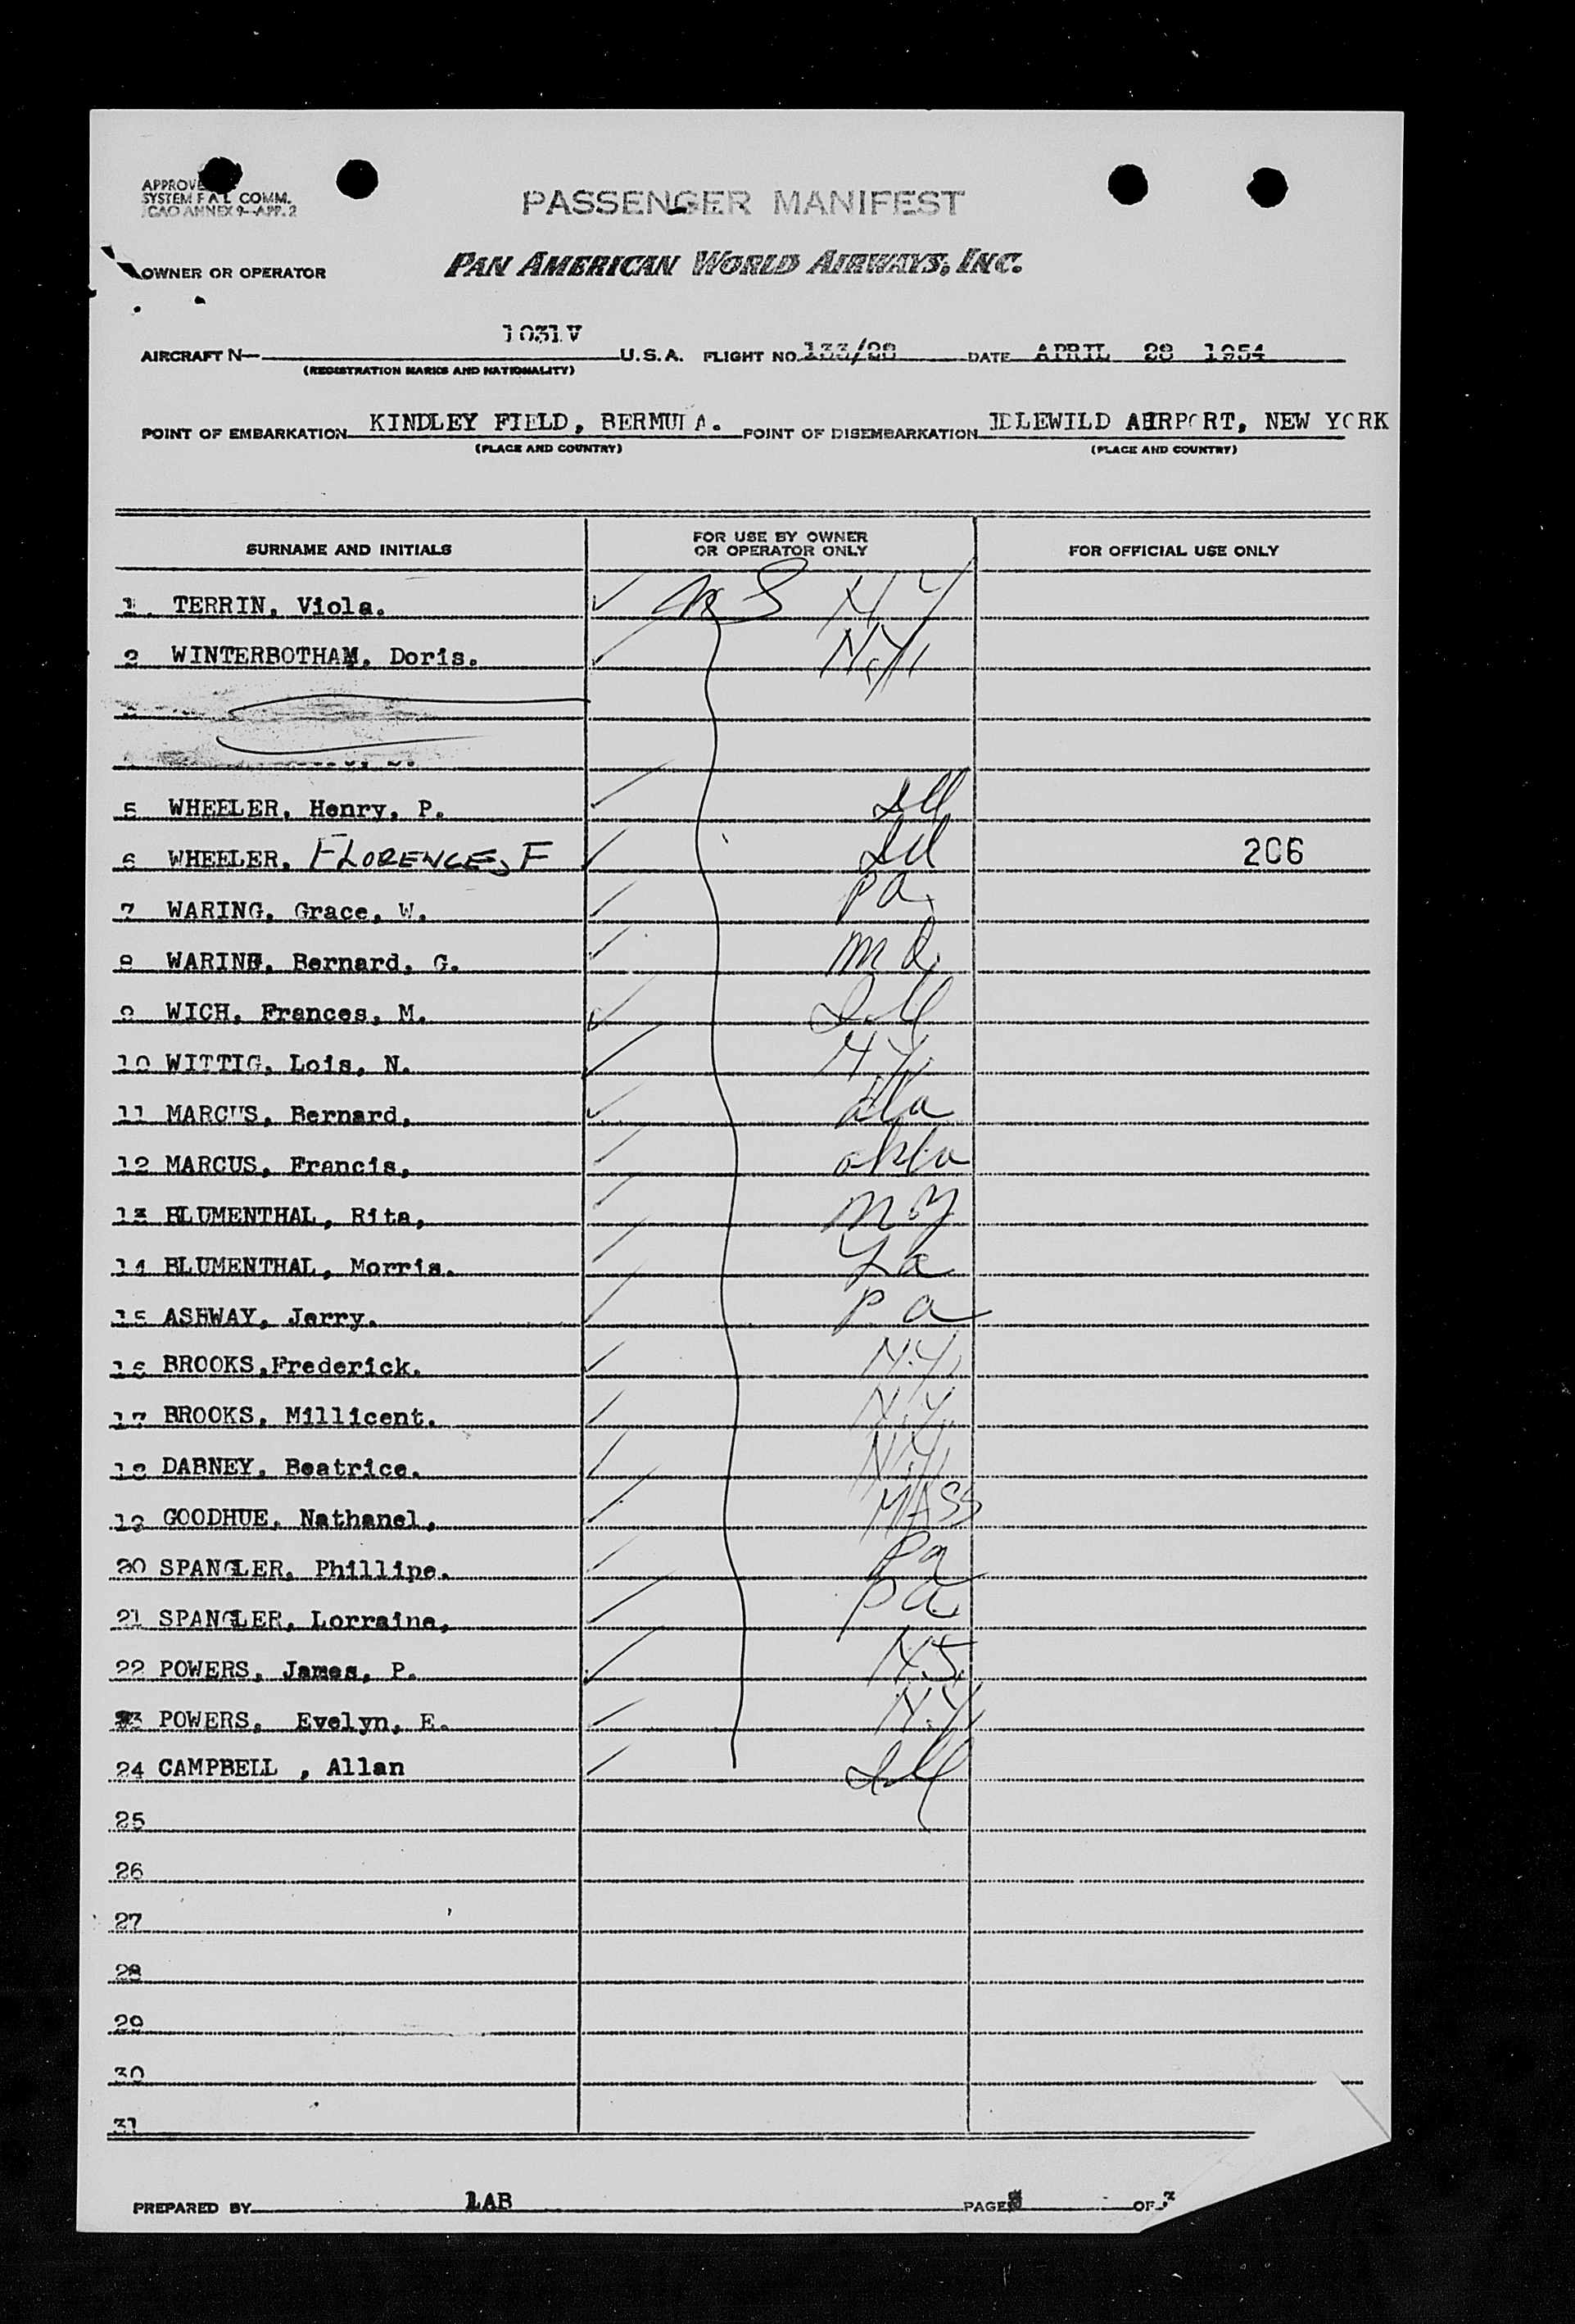 APPROVE
SYSTEM F A L COMM.
ICAO ANNEX 9-APP. 2
PASSENGER MANIFEST
OWNER OR OPERATOR PAN AMERICAN WORLD AIRWAYS, INC.
AIRCRAFT N— 1031V U.S.A. FLIGHT NO. 133/28 DATE APRIL 28 1954
(REGISTRATION MARKS AND NATIONALITY)
POINT OF EMBARKATION KINDLEY FIELD, BERMUDA. POINT OF DISEMBARKATION IDLEWILD AIRPORT, NEW YORK
(PLACE AND COUNTRY) (PLACE AND COUNTRY)
SURNAME AND INITIALS FOR USE BY OWNER OR OPERATOR ONLY FOR OFFICIAL USE ONLY
1 TERRIN, Viola. N.Y
2 WINTERBOTHAM, Doris. N.Y.
5 WHEELER, Henry, P. Ill
6 WHEELER, FLORENCE, F Ill 206
7 WARING, Grace, W. Pa.
8 WARING, Bernard, G. Md.
9 WICH, Frances, M. Ill
10 WITTIG, Lois, N. N.Y.
11 MARCUS, Bernard,
12 MARCUS, Francis, okla
13 BLUMENTHAL, Rita, N Y
14 BLUMENTHAL, Morris. La
15 ASHWAY, Jerry. Pa
16 BROOKS,Frederick. N.Y.
17 BROOKS, Millicent. N.Y.
18 DABNEY, Beatrice. N.Y.
19 GOODHUE, Nathanel, MASS
20 SPANGLER, Phillipe. Pa
21 SPANGLER, Lorraine, Pa
22 POWERS, James, P. N.J.
23 POWERS, Evelyn, E. N.Y.
24 CAMPBELL , Allan Ill
25
26
27
28
29
30
31
PREPARED BY LAB PAGE 3 OF 3